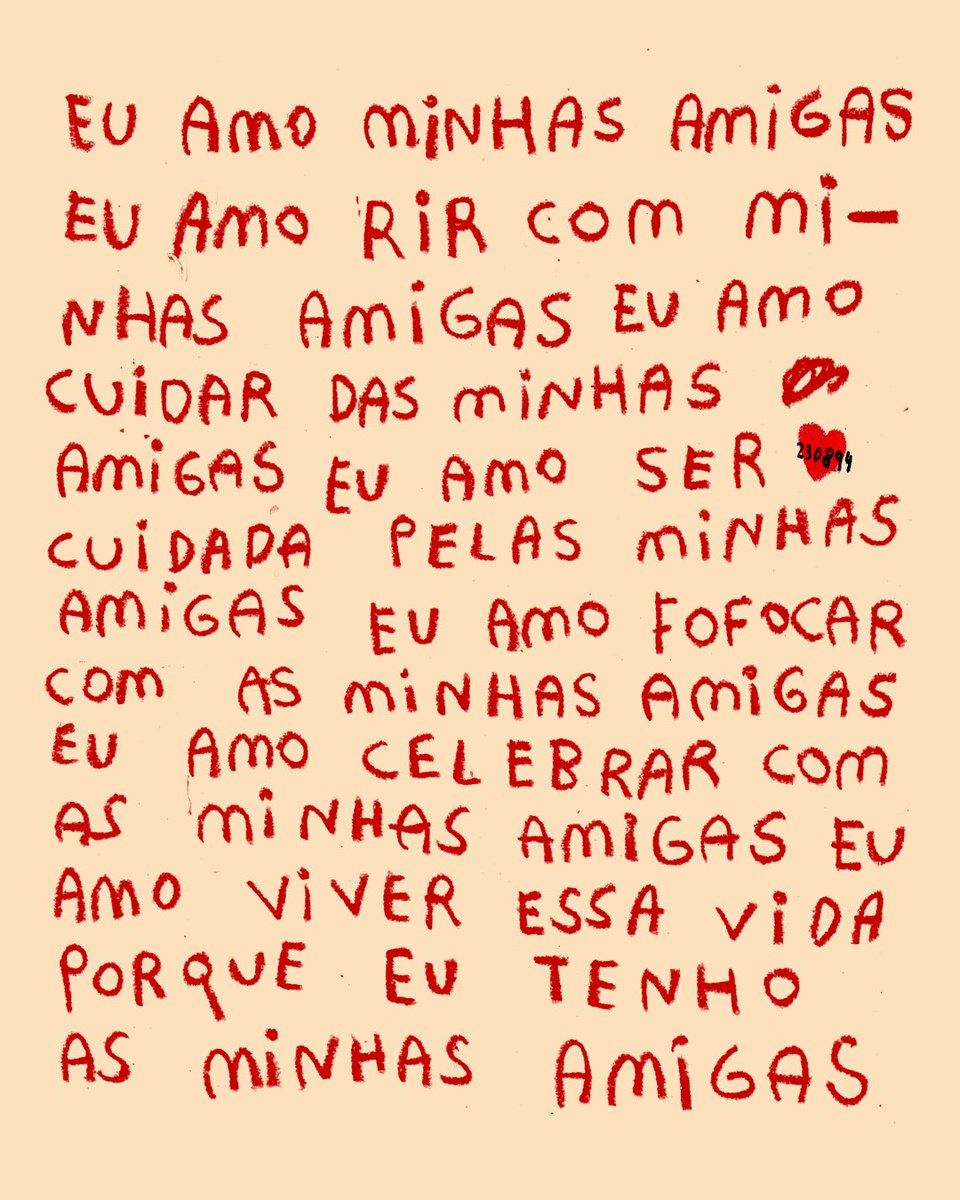 EU AMO MiNHAS AMiGAS
EU AMO RiR COM Mi-
NHAS AMiGAS EU AMO
CUiDAR DAS MiNHAS
AMiGAS EU AMO SER
230894
CUiDADA PELAS MiNHAS
AMiGAS EU AMO FOFOCAR
COM AS MiNHAS AMiGAS
EU AMO CELEBRAR COM
AS MiNHAS AMiGAS EU
AMO ViVER ESSA ViDA
PORQUE EU TENHO
AS MiNHAS AMiGAS